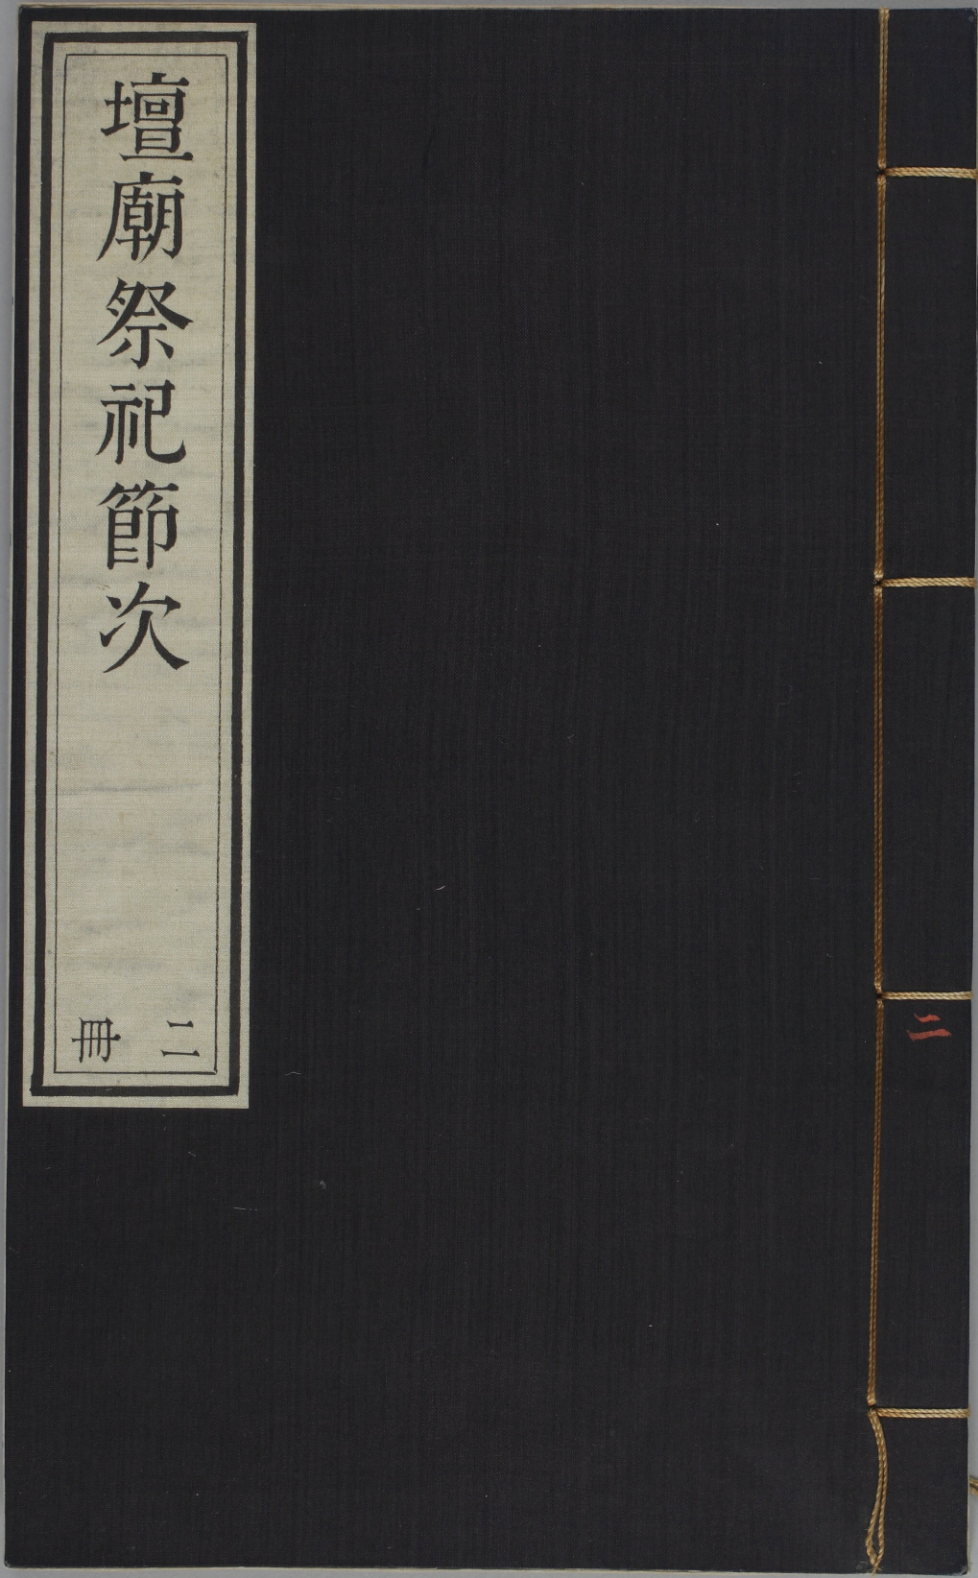 壇廟祭祀節次
二冊
二